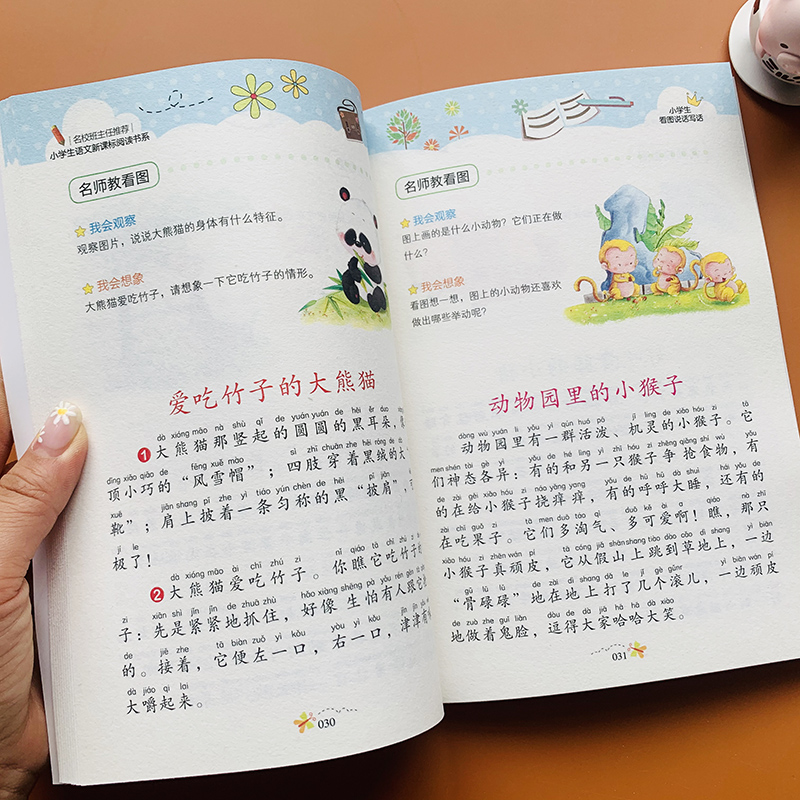 名校班主任推荐
小学生语文新课标阅读书系
名师教看图
我会观察
观察图片，说说大熊猫的身体有什么特征。
我会想象
大熊猫爱吃竹子，请想象一下它吃竹子的情形。
爱吃竹子的大熊猫
dà xióng māo nà shù qǐ de yuán yuán de hēi ěr duo
1 大熊猫那竖起的圆圆的黑耳朵，
dǐng xiǎo qiǎo de fēng xuě mào sì zhī chuān zhe hēi róng de dà
顶小巧的“风雪帽”；四肢穿着黑绒的大
xuē jiān shang pī zhe yì tiáo yún chèn de hēi pī jiān
靴”；肩上披着一条匀称的黑“披肩”，
jí le
极了！
dà xióng māo ài chī zhú zi nǐ qiáo tā chī zhú zi
2 大熊猫爱吃竹子。你瞧它吃竹子
zi xiān shì jǐn jǐn de zhuā zhù hǎo xiàng shēng pà yǒu rén gēn tā
子：先是紧紧地抓住，好像生怕有人跟它
de jiē zhe tā biàn zuǒ yì kǒu yòu yì kǒu
的。接着，它便左一口，右一口，津津
dà jiáo qǐ lai
大嚼起来。
030
小学生
看图说话写话
名师教看图
我会观察
图上画的是什么小动物？它们正在做
什么？
我会想象
看图想一想，图上的小动物还喜欢
做出哪些举动呢？
动物园里的小猴子
dòng wù yuán li yǒu yì qún huó pō jī líng de xiǎo hóu zi tā
动物园里有一群活泼、机灵的小猴子。它
men shén tài gè yì yǒu de hé lìng yì zhī hóu zi zhēng qiǎng shí wù yǒu
们神态各异：有的和另一只猴子争抢食物，有
de zài gěi xiǎo hóu zi náo yǎng yang yǒu de hū hū dà shuì hái yǒu de
的在给小猴子挠痒痒，有的呼呼大睡，还有的
zài chī guǒ zi tā men duō táo qì duō kě ài a qiáo nà zhī
在吃果子。它们多淘气、多可爱啊！瞧，那只
xiǎo hóu zi zhēn wán pí tā cóng jiǎ shān shang tiào dào cǎo dì shang yì biān
小猴子真顽皮，它从假山上跳到草地上，一边
gū lù lù de zài dì shang dǎ le jǐ gè gǔnr yì biān wán pí
“骨碌碌”地在地上打了几个滚儿，一边顽皮
de zuò zhe guǐ liǎn dòu de dà jiā hā hā dà xiào
地做着鬼脸，逗得大家哈哈大笑。
031